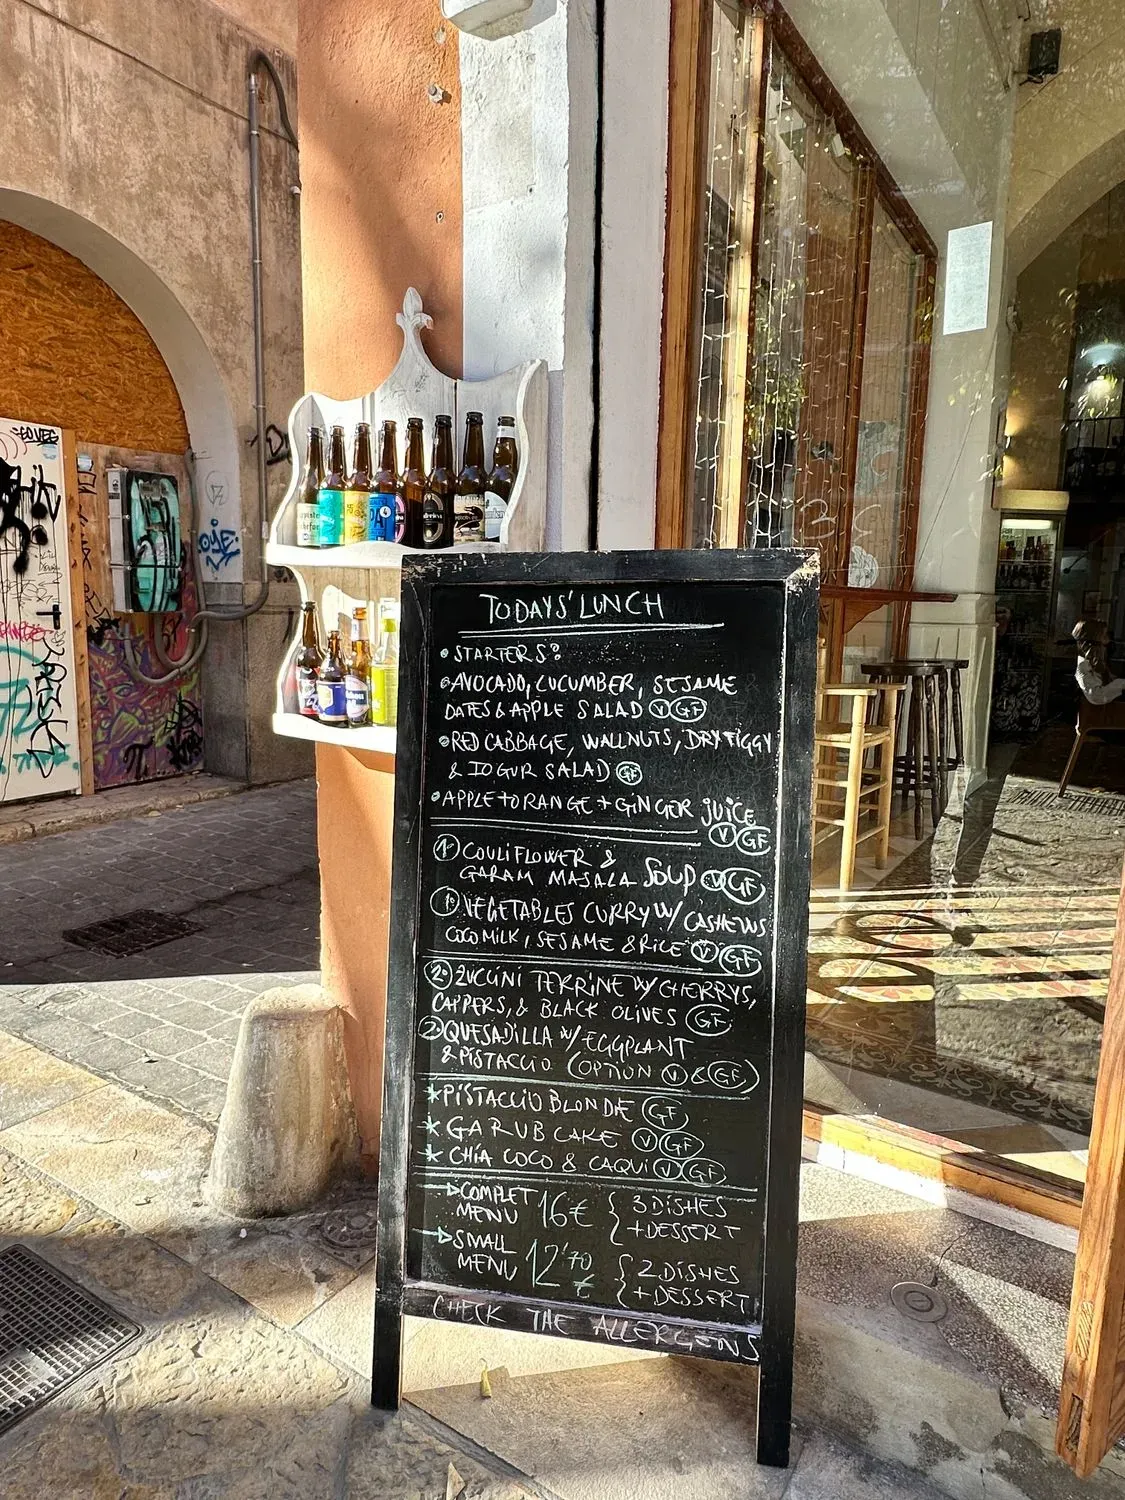 TODAYS' LUNCH
• STARTERS:
• AVOCADO, CUCUMBER, SESAME
DATES & APPLE SALAD V GF
• RED CABBAGE, WALLNUTS, DRY FIGGY
& IOGUR SALAD GF
• APPLE + ORANGE + GINGER JUICE
V GF
1º COULIFLOWER &
GARAM MASALA SOUP V GF
1º VEGETABLES CURRY W/ CASHEWS
COCO MILK, SESAME & RICE V GF
2º ZUCCINI TERRINE W/ CHERRYS,
CAPPERS, & BLACK OLIVES GF
2º QUESADILLA W/ EGGPLANT
& PISTACCIO (OPTION V & GF)
* PISTACCIO BLONDE GF
* GARUB CAKE V GF
* CHÍA COCO & CAQUI V GF
COMPLET MENU 16€ { 3 DISHES
+ DESSERT
SMALL MENU 12'70 € { 2 DISHES
+ DESSERT
CHECK THE ALLERGENS